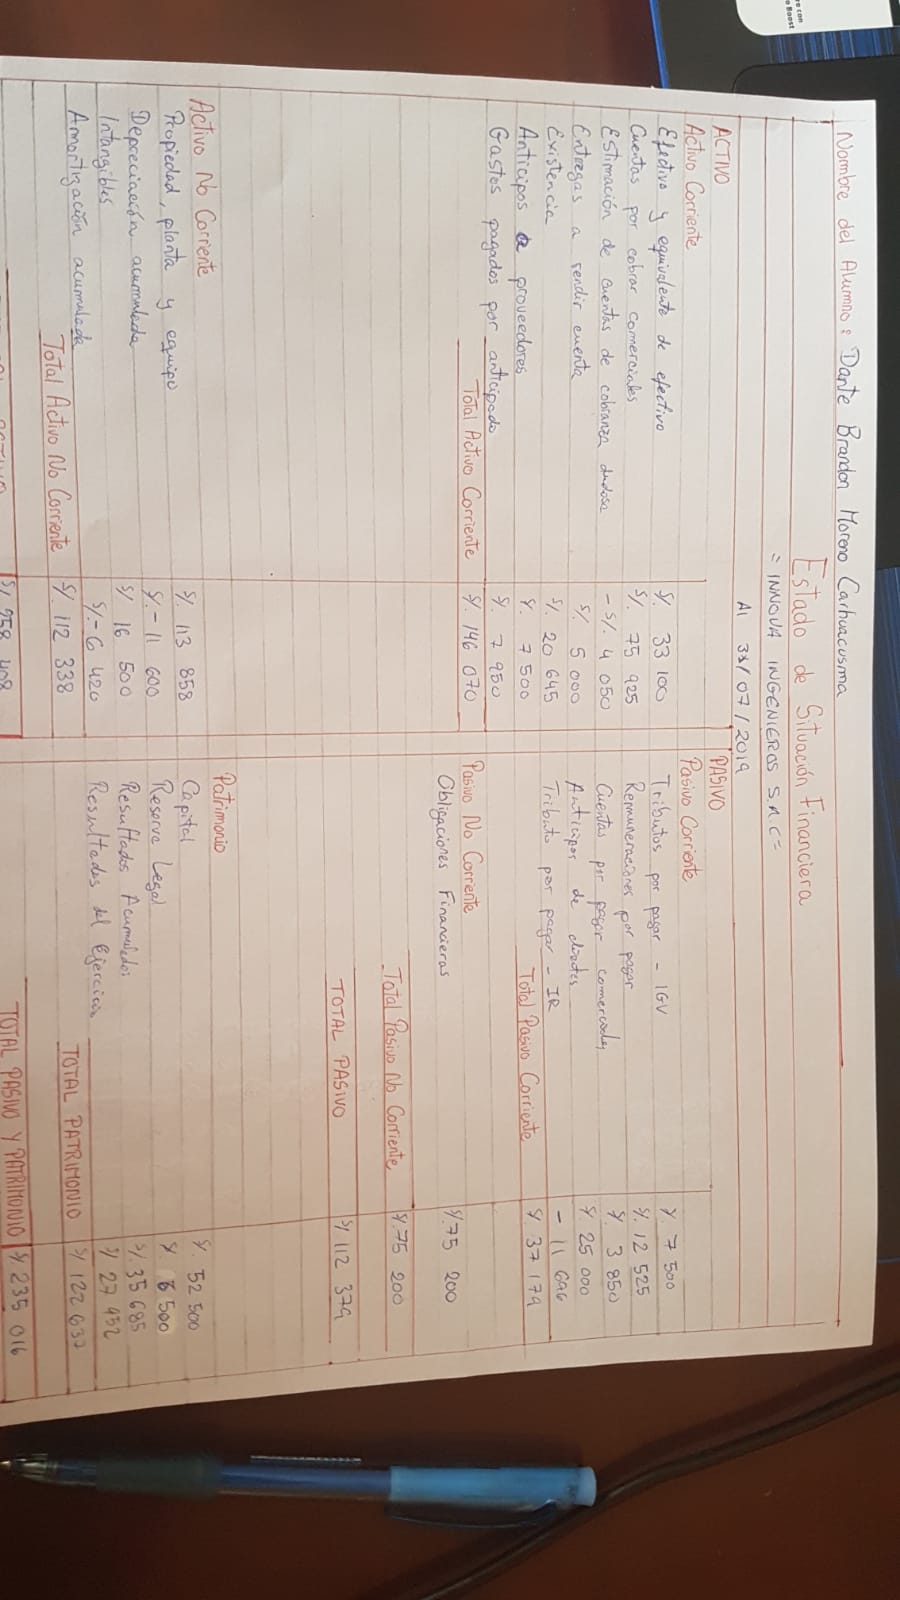 Nombre del Alumno: Dante Brandon Moreno Carhuacusma
Estado de Situación Financiera
= INNOVA INGENIEROS S.A.C =
Al 31/07/2019
ACTIVO
Activo Corriente
Efectivo y equivalente de efectivo S/. 33 100
Cuentas por cobrar comerciales S/. 75 925
Estimación de cuentas de cobranza dudosa - S/. 4 050
Entregas a rendir cuenta S/. 5 000
Existencia S/. 20 645
Anticipos a proveedores S/. 7 500
Gastos pagados por anticipado S/. 7 950
Total Activo Corriente S/. 146 070
Activo No Corriente
Propiedad, planta y equipo S/. 113 858
Depreciación acumulada S/. - 11 600
Intangibles S/ 16 500
Amortización acumulada S/. - 6 420
Total Activo No Corriente S/. 112 338
S/ 258 408
PASIVO
Pasivo Corriente
Tributos por pagar - IGV S/. 7 500
Remuneraciones por pagar S/. 12 525
Cuentas por pagar comerciales S/ 3 850
Anticipos de clientes S/. 25 000
Tributo por pagar - IR - 11 696
Total Pasivo Corriente S/. 37 179
Pasivo No Corriente
Obligaciones Financieras S/. 75 200
Total Pasivo No Corriente S/. 75 200
TOTAL PASIVO S/ 112 379
Patrimonio
Capital S/. 52 500
Reserva Legal S/. 500
Resultados Acumulados S/. 35 685
Resultados del Ejercicio S/ 27 452
TOTAL PATRIMONIO S/ 122 637
TOTAL PASIVO Y PATRIMONIO S/ 235 016